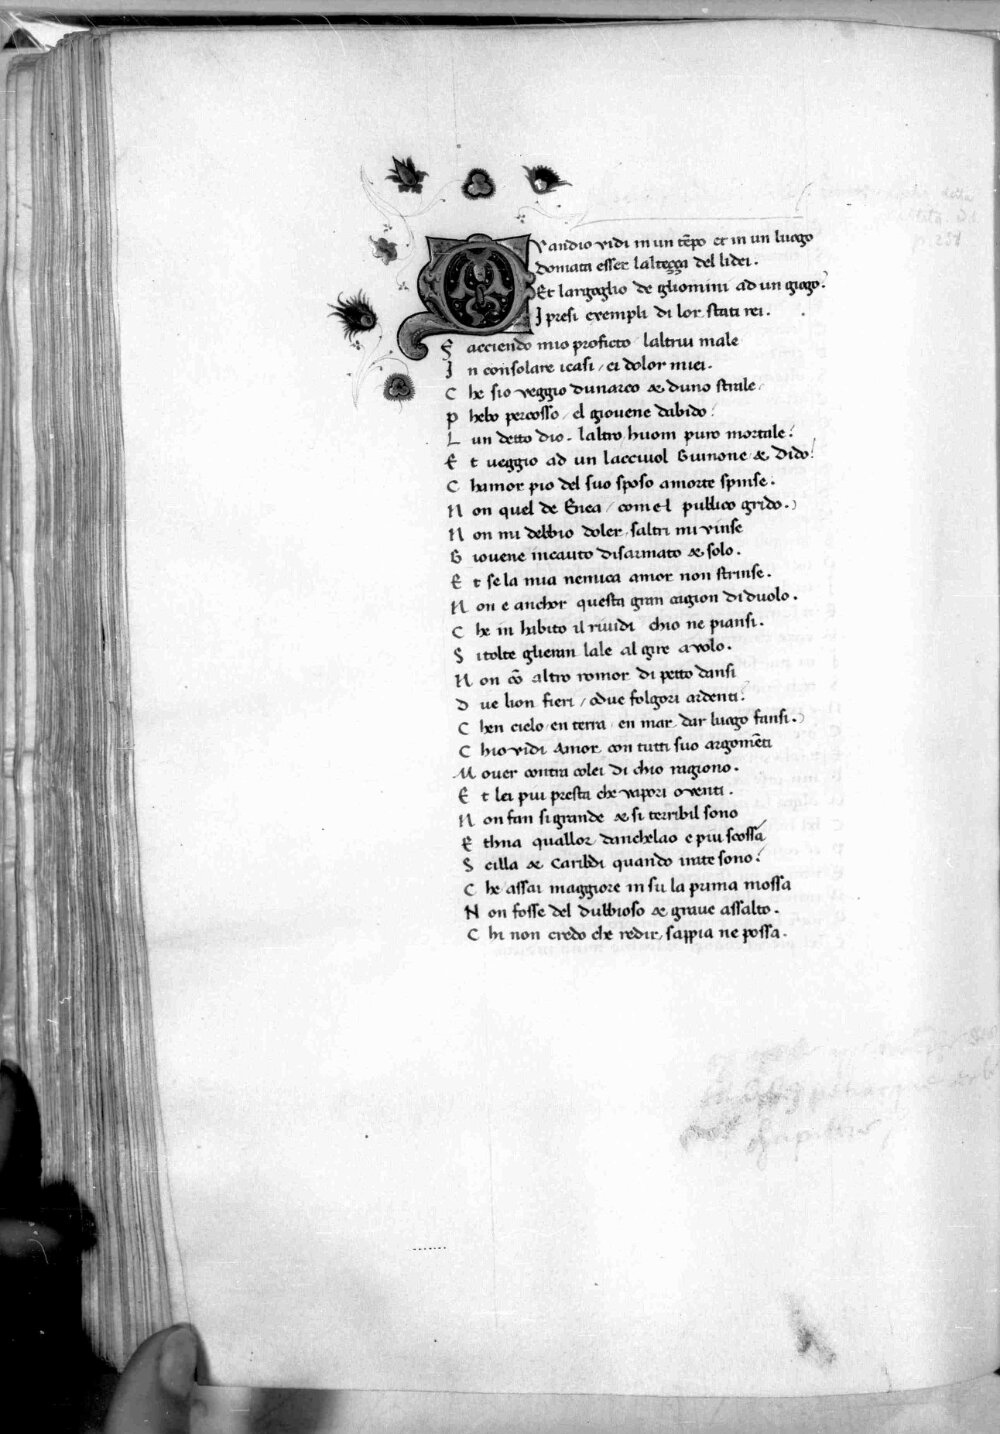 Quandio vidi in un tẽpo et in un luogo
domata esser laltezza del li dei.
Et largoglio de gliomini ad un giogo.
I presi exempli di lor stati rei.
F acciendo mio proficto laltrui male
I n consolare i casi / ei dolor miei.
C he sio veggio dunarco & duno strale /
P hebo percosso / el giovene dabido.
L un detto dio. laltro huom puro mortale.
E t veggio ad un lacciuol Giunone & Dido.
C hamor pio del suo sposo amorte spinse.
N on quel de Enea / come-l publico grido.
N on mi debbio doler / saltri mi vinse
G iovene incauto disarmato & solo.
E t se la mia nemica amor non strinse.
N on e anchor questa gran cagion di duolo.
C he in habito il rividi chio ne piansi.
S i tolte glieran lale al gire a volo.
N on cõ altro romor di petto dansi
D ue lion fieri / o due folgori ardenti.
C hen cielo / en terra / en mar dar luogo fansi.
C hio vidi Amor con tutti suo argomẽti
M over contra colei di chio ragiono.
E t lei piu presta che vapori o venti.
N on fan si grande & si terribil sono
E thna quallor danchelao e piu scossa
S cilla & Caribdi quando irate sono.
C he assai maggiore in su la prima mossa
N on fosse del dubbioso & grave assalto.
C hi non credo che redir / sappia ne possa.